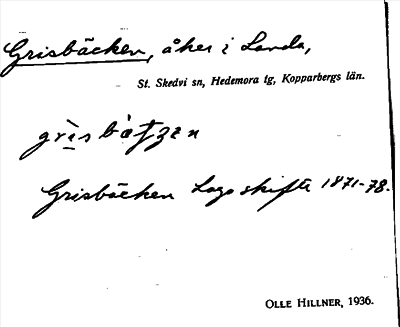 Grisbäcken, åker i Landa,
St. Skedvi sn, Hedemora tg, Kopparbergs län.
Grisbäcken Laga skifte 1871-78.
OLLE HILLNER, 1936.